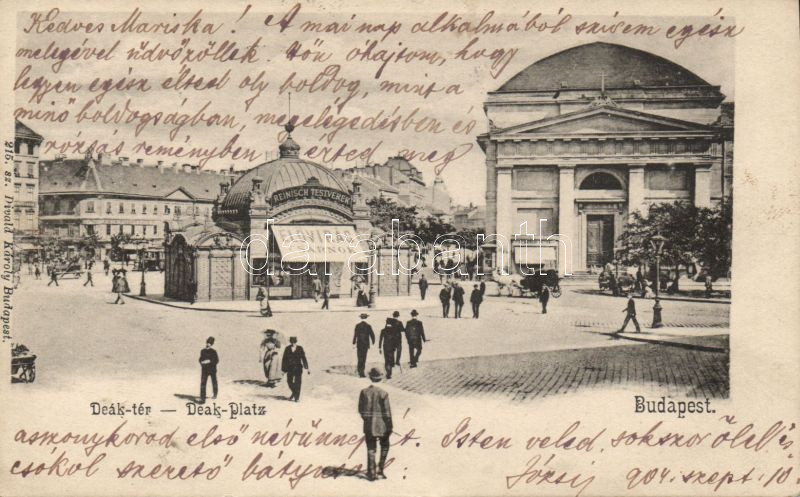 Kedves Mariska! A mai nap alkalmából szívem egész
melegével üdvözöllek. Hőn óhajtom, hogy
legyen egész élted oly boldog, mint a
minő boldogságban, megelégedésben és
rózsás reményben érted meg
215. sz. Divald Károly Budapest.
REINISCH TESTVÉREK
ÉLŐVIRÁG
CSARNOK
darabanth
Deák-tér — Deak-Platz
Budapest.
asszonykorod első névünnepét. Isten veled. sokszor ölel és
csókol szerető bátyus: Józsi 904. szept. 10.